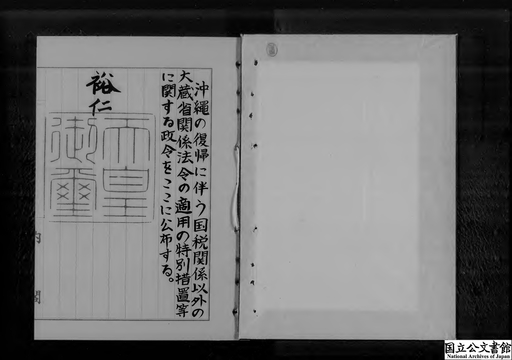 沖縄の復帰に伴う国税関係以外の
大蔵省関係法令の適用の特別措置等
に関する政令をここに公布する。
裕仁
天皇
御璽
内閣
国立公文書館
National Archives of Japan